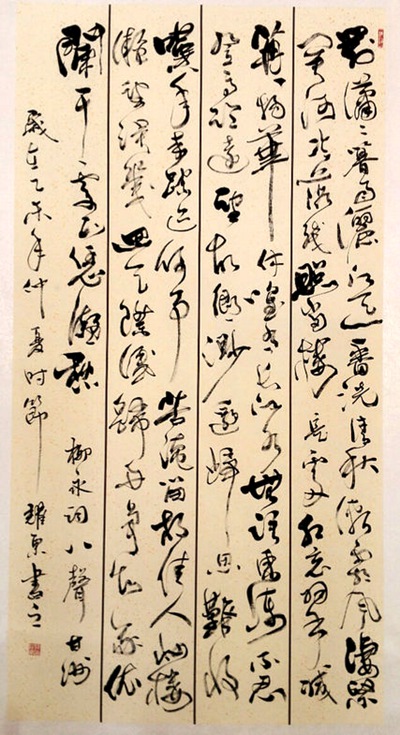 對瀟瀟暮雨灑江天一番洗清秋漸霜風淒緊
關河冷落殘照當樓是處紅衰翠減
苒苒物華休惟有長江水無語東流不忍
登高臨遠望故鄉渺邈歸思難收
嘆年來蹤跡何事苦淹留想佳人妝樓
凝望誤幾回天際識歸舟爭知我倚
闌干處正恁凝愁 柳永詞八聲甘州
歲在乙未年仲夏時節 耀東書之